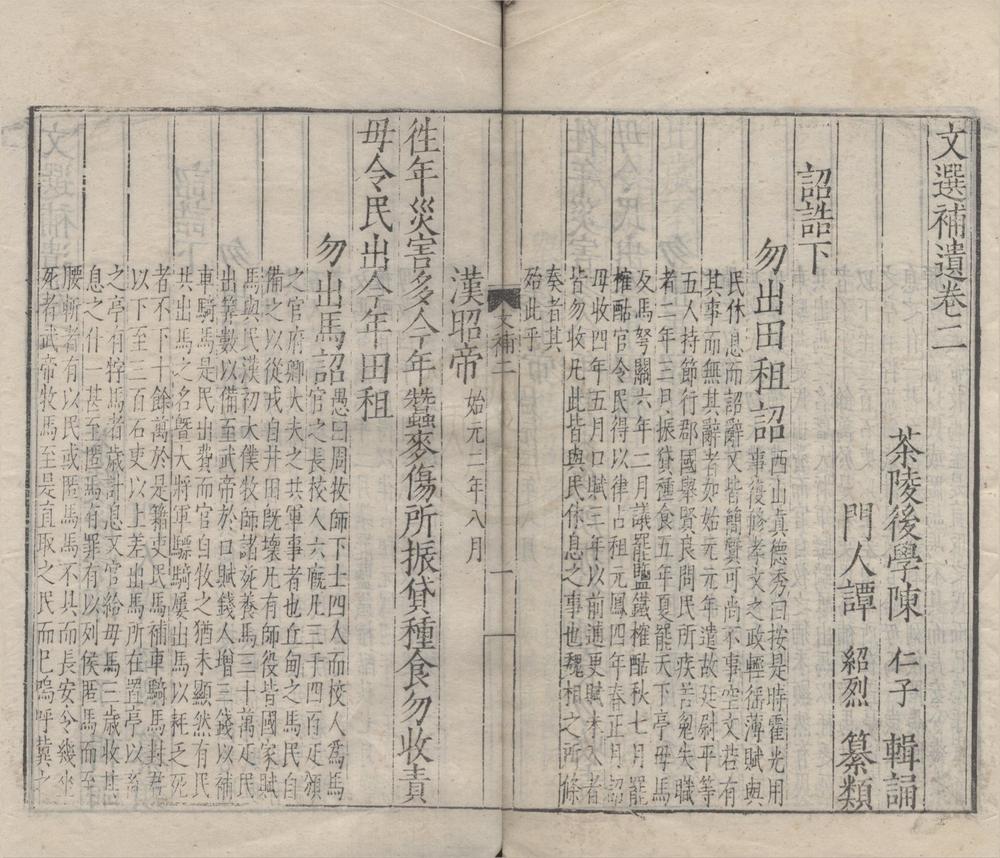 文選補遺卷二
茶陵後學陳 仁子 輯誦
門人譚 紹烈 纂類
詔誥下
勿出田租詔 西山真德秀曰按是時霍光用
事復修孝文之政輕徭薄賦與
民休息而詔辭又皆簡質可尚不事空文若有
其事而無其辭者如始元元年遣故廷尉平等
五人持節行郡國舉賢良問民所疾苦冤失職
者二年三月振貸種食五年夏罷天下亭母馬
及馬弩關六年二月議罷鹽鐵榷酤秋七月罷
榷酤官令民得以律占租元鳳四年春正月詔
毋收四年五月口賦三年以前逋更賦未入者
皆勿收凡此皆與民休息之事也魏相之所條
奏者其
始此乎
文補二
一
漢昭帝 始元二年八月
往年災害多今年蠶麥傷所振貸種食勿收責
毋令民出今年田租
勿出馬詔 愚曰周牧師下士四人而校人爲馬
官之長校人六廐凡三千四百疋頒
之官府卿大夫之共軍事者也丘甸之馬民自
備之以從戎自井田旣壞凡有師役皆國家賦
馬與民漢初大僕牧師諸苑養馬三十萬疋民
出筭數以備至武帝於口賦錢人增三錢以補
車騎馬是民出費而官自牧之猶未顯然有民
共出馬之名曁大將軍驃騎屢出馬以耗乏死
者不下十餘萬於是籍吏民馬補車騎馬封君
以下至三百石吏以上差出馬所在置亭以畜
之亭有牸馬者歲計息又官給母馬三歲收其
息之什一甚至匿馬有罪有以列侯匿馬而至
腰斬者有以民或匿馬馬不具而長安令幾坐
死者武帝牧馬至是直取之民而已嗚呼冀之